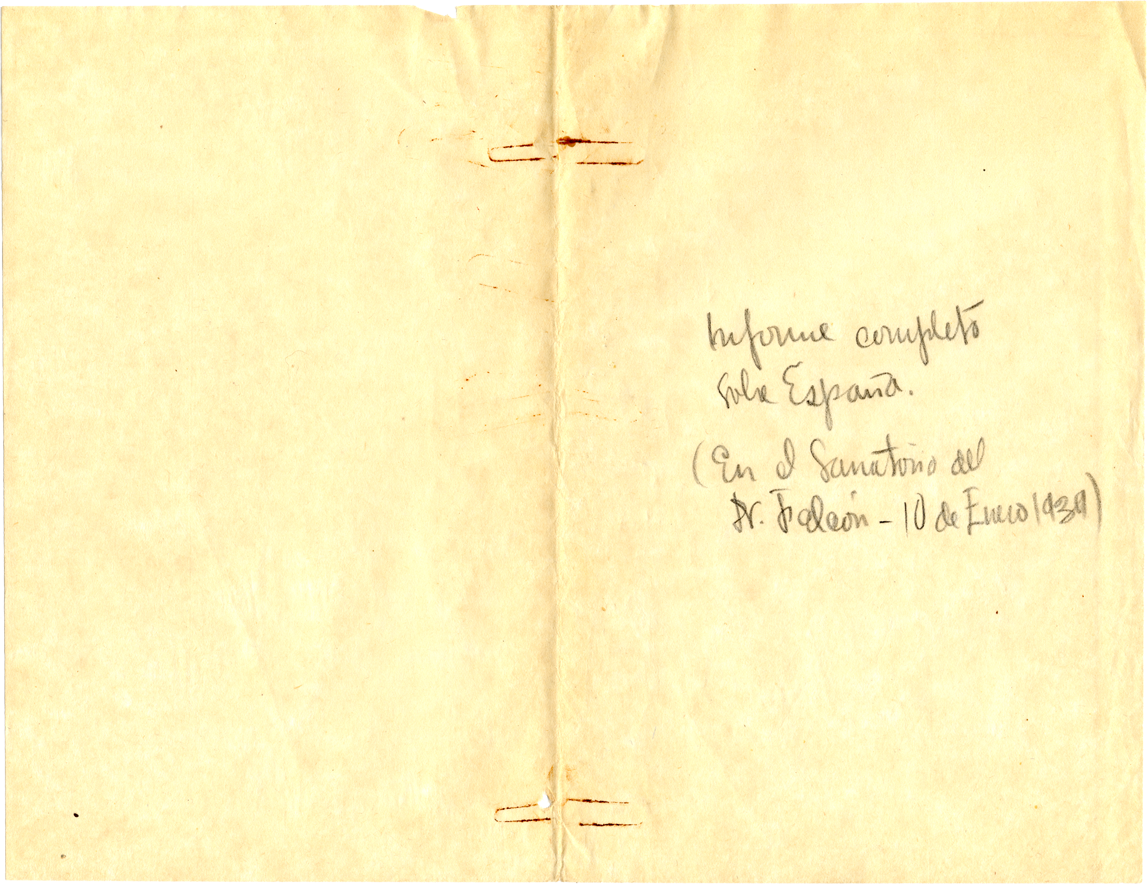 Informe completo
sobre España.
(En el Sanatorio del
Dr. Falcón - 10 de Enero 1939)